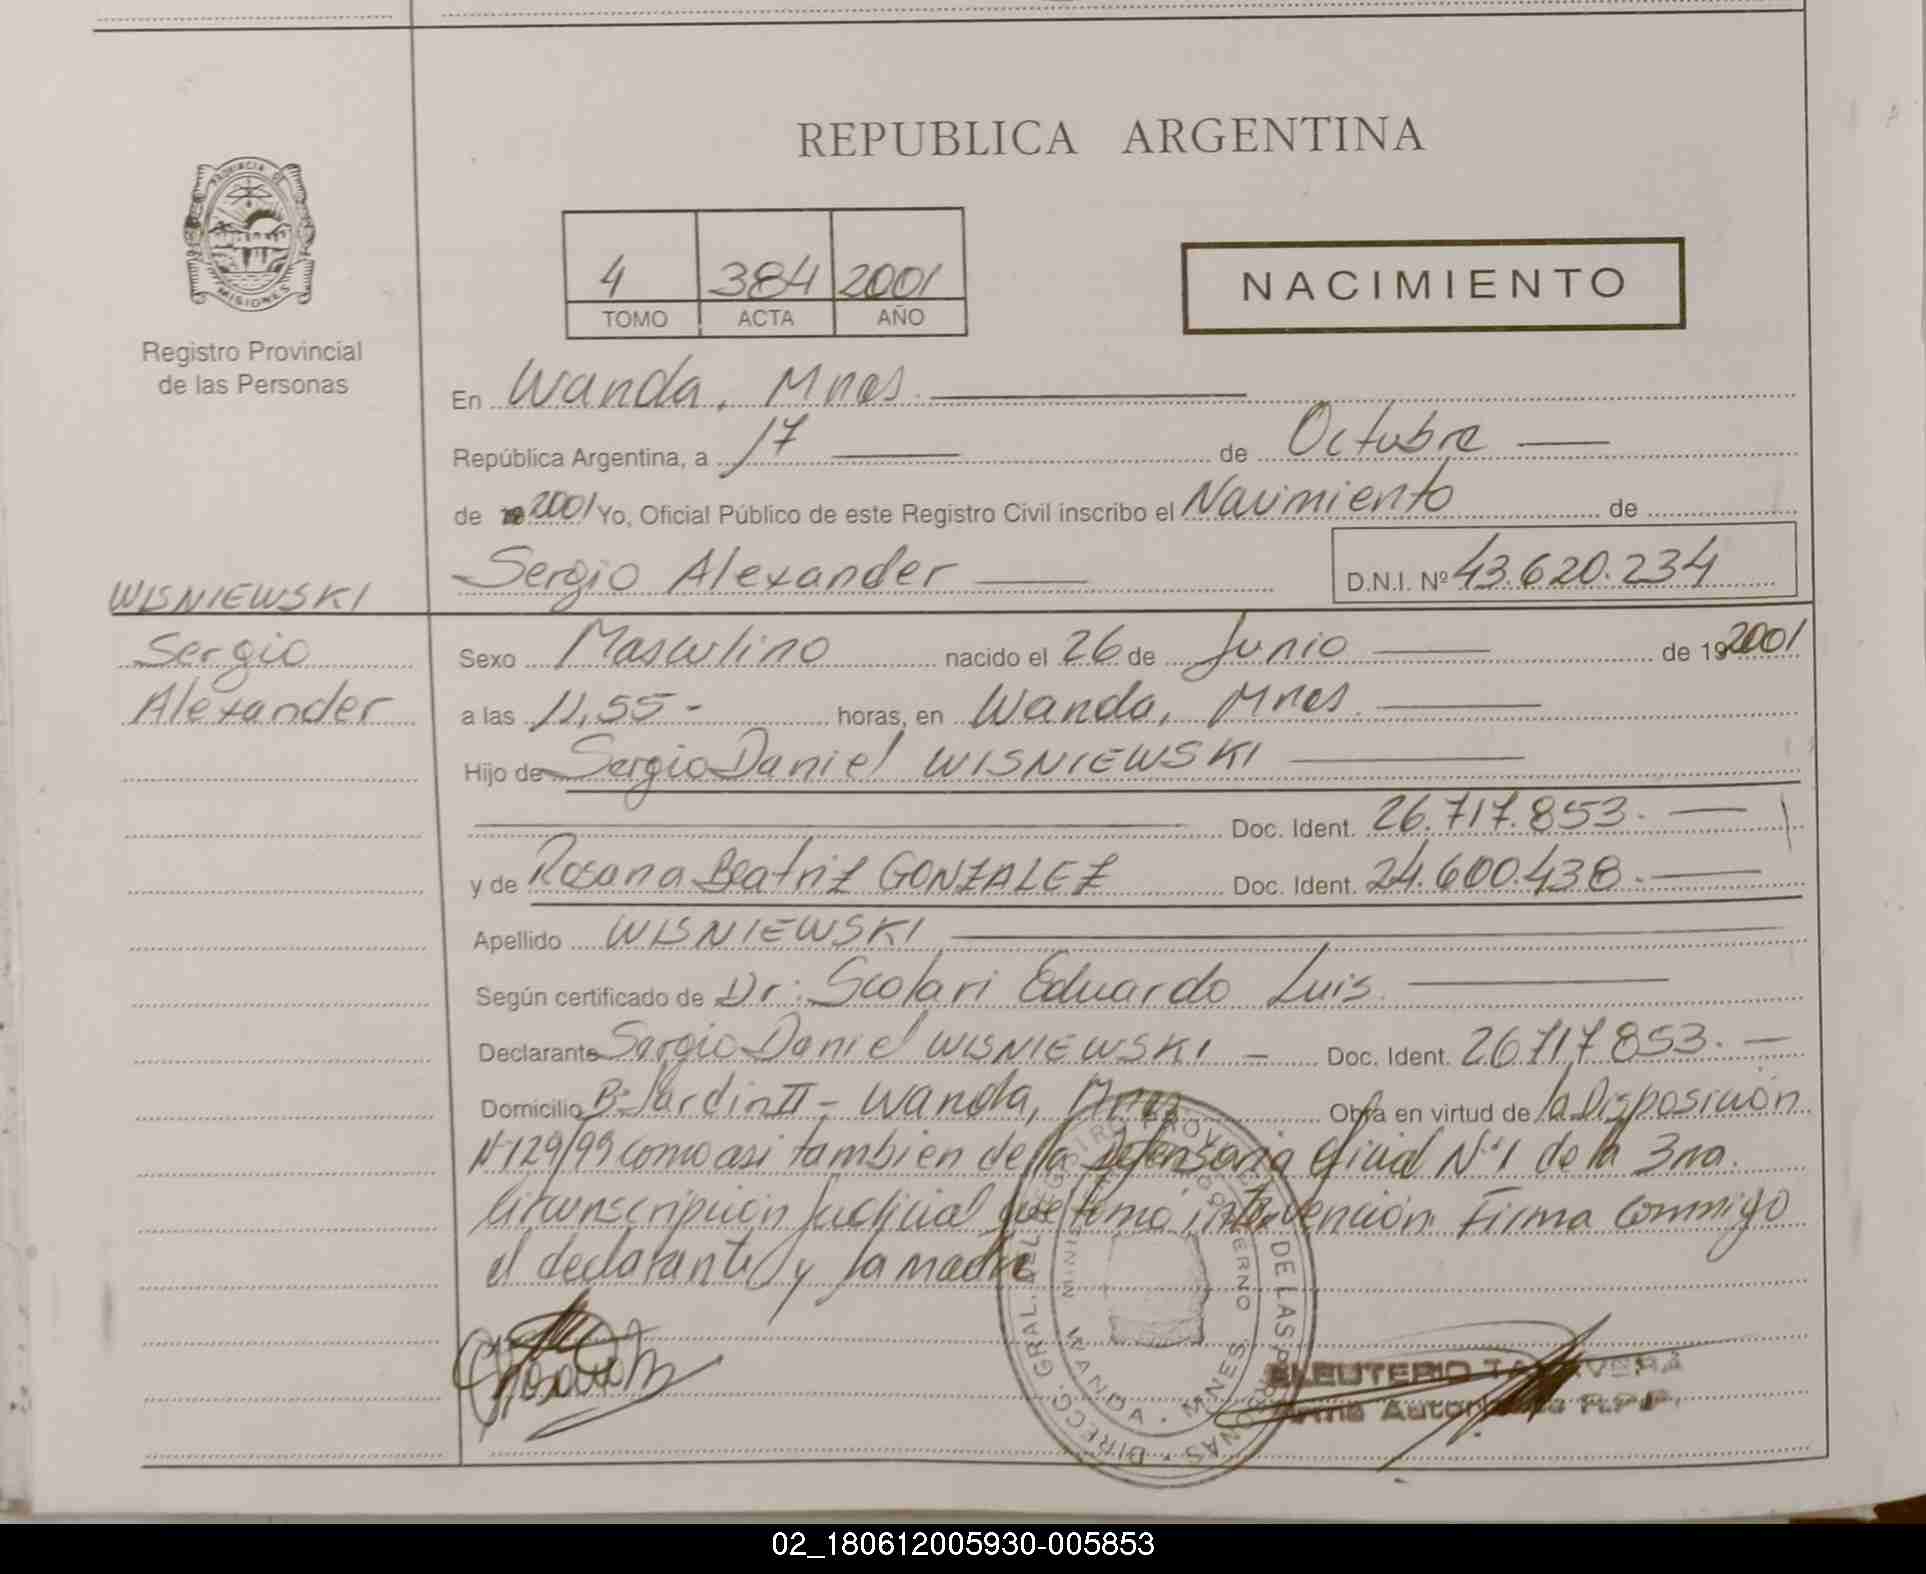 REPUBLICA ARGENTINA
PROVINCIA DE
MISIONES
Registro Provincial
de las Personas
4 384 2001
TOMO ACTA AÑO
NACIMIENTO
En Wanda, Mnes.
República Argentina, a 17 de Octubre
de 2001 Yo, Oficial Público de este Registro Civil inscribo el Nacimiento de
Sergio Alexander D.N.I. Nº 43.620.234
WISNIEWSKI
Sergio
Alexander
Sexo Masculino nacido el 26 de Junio de 19 2001
a las 11,55 - horas, en Wanda, Mnes.
Hijo de Sergio Daniel WISNIEWSKI
Doc. Ident. 26.717.853.
y de Rosana Beatriz GONZALEZ Doc. Ident. 24.600.438.
Apellido WISNIEWSKI
Según certificado de Dr: Scolari Eduardo Luis.
Declarante Sergio Daniel WISNIEWSKI - Doc. Ident. 26.717.853.
Domicilio Bº Jardin II - Wanda, Mnes Obra en virtud de la Disposición
Nº 129/99 como asi tambien de la Defensoria oficial Nº 1 de la 3ra.
Circunscripción Judicial que tomó intervención. Firma conmigo
el declarante y la madre
DIRECC. GRAL. DE LAS PERSONAS
WANDA - MNES.
ELEUTERIO TALAVERA
Firma Autorizada R.P.P.
02_180612005930-005853